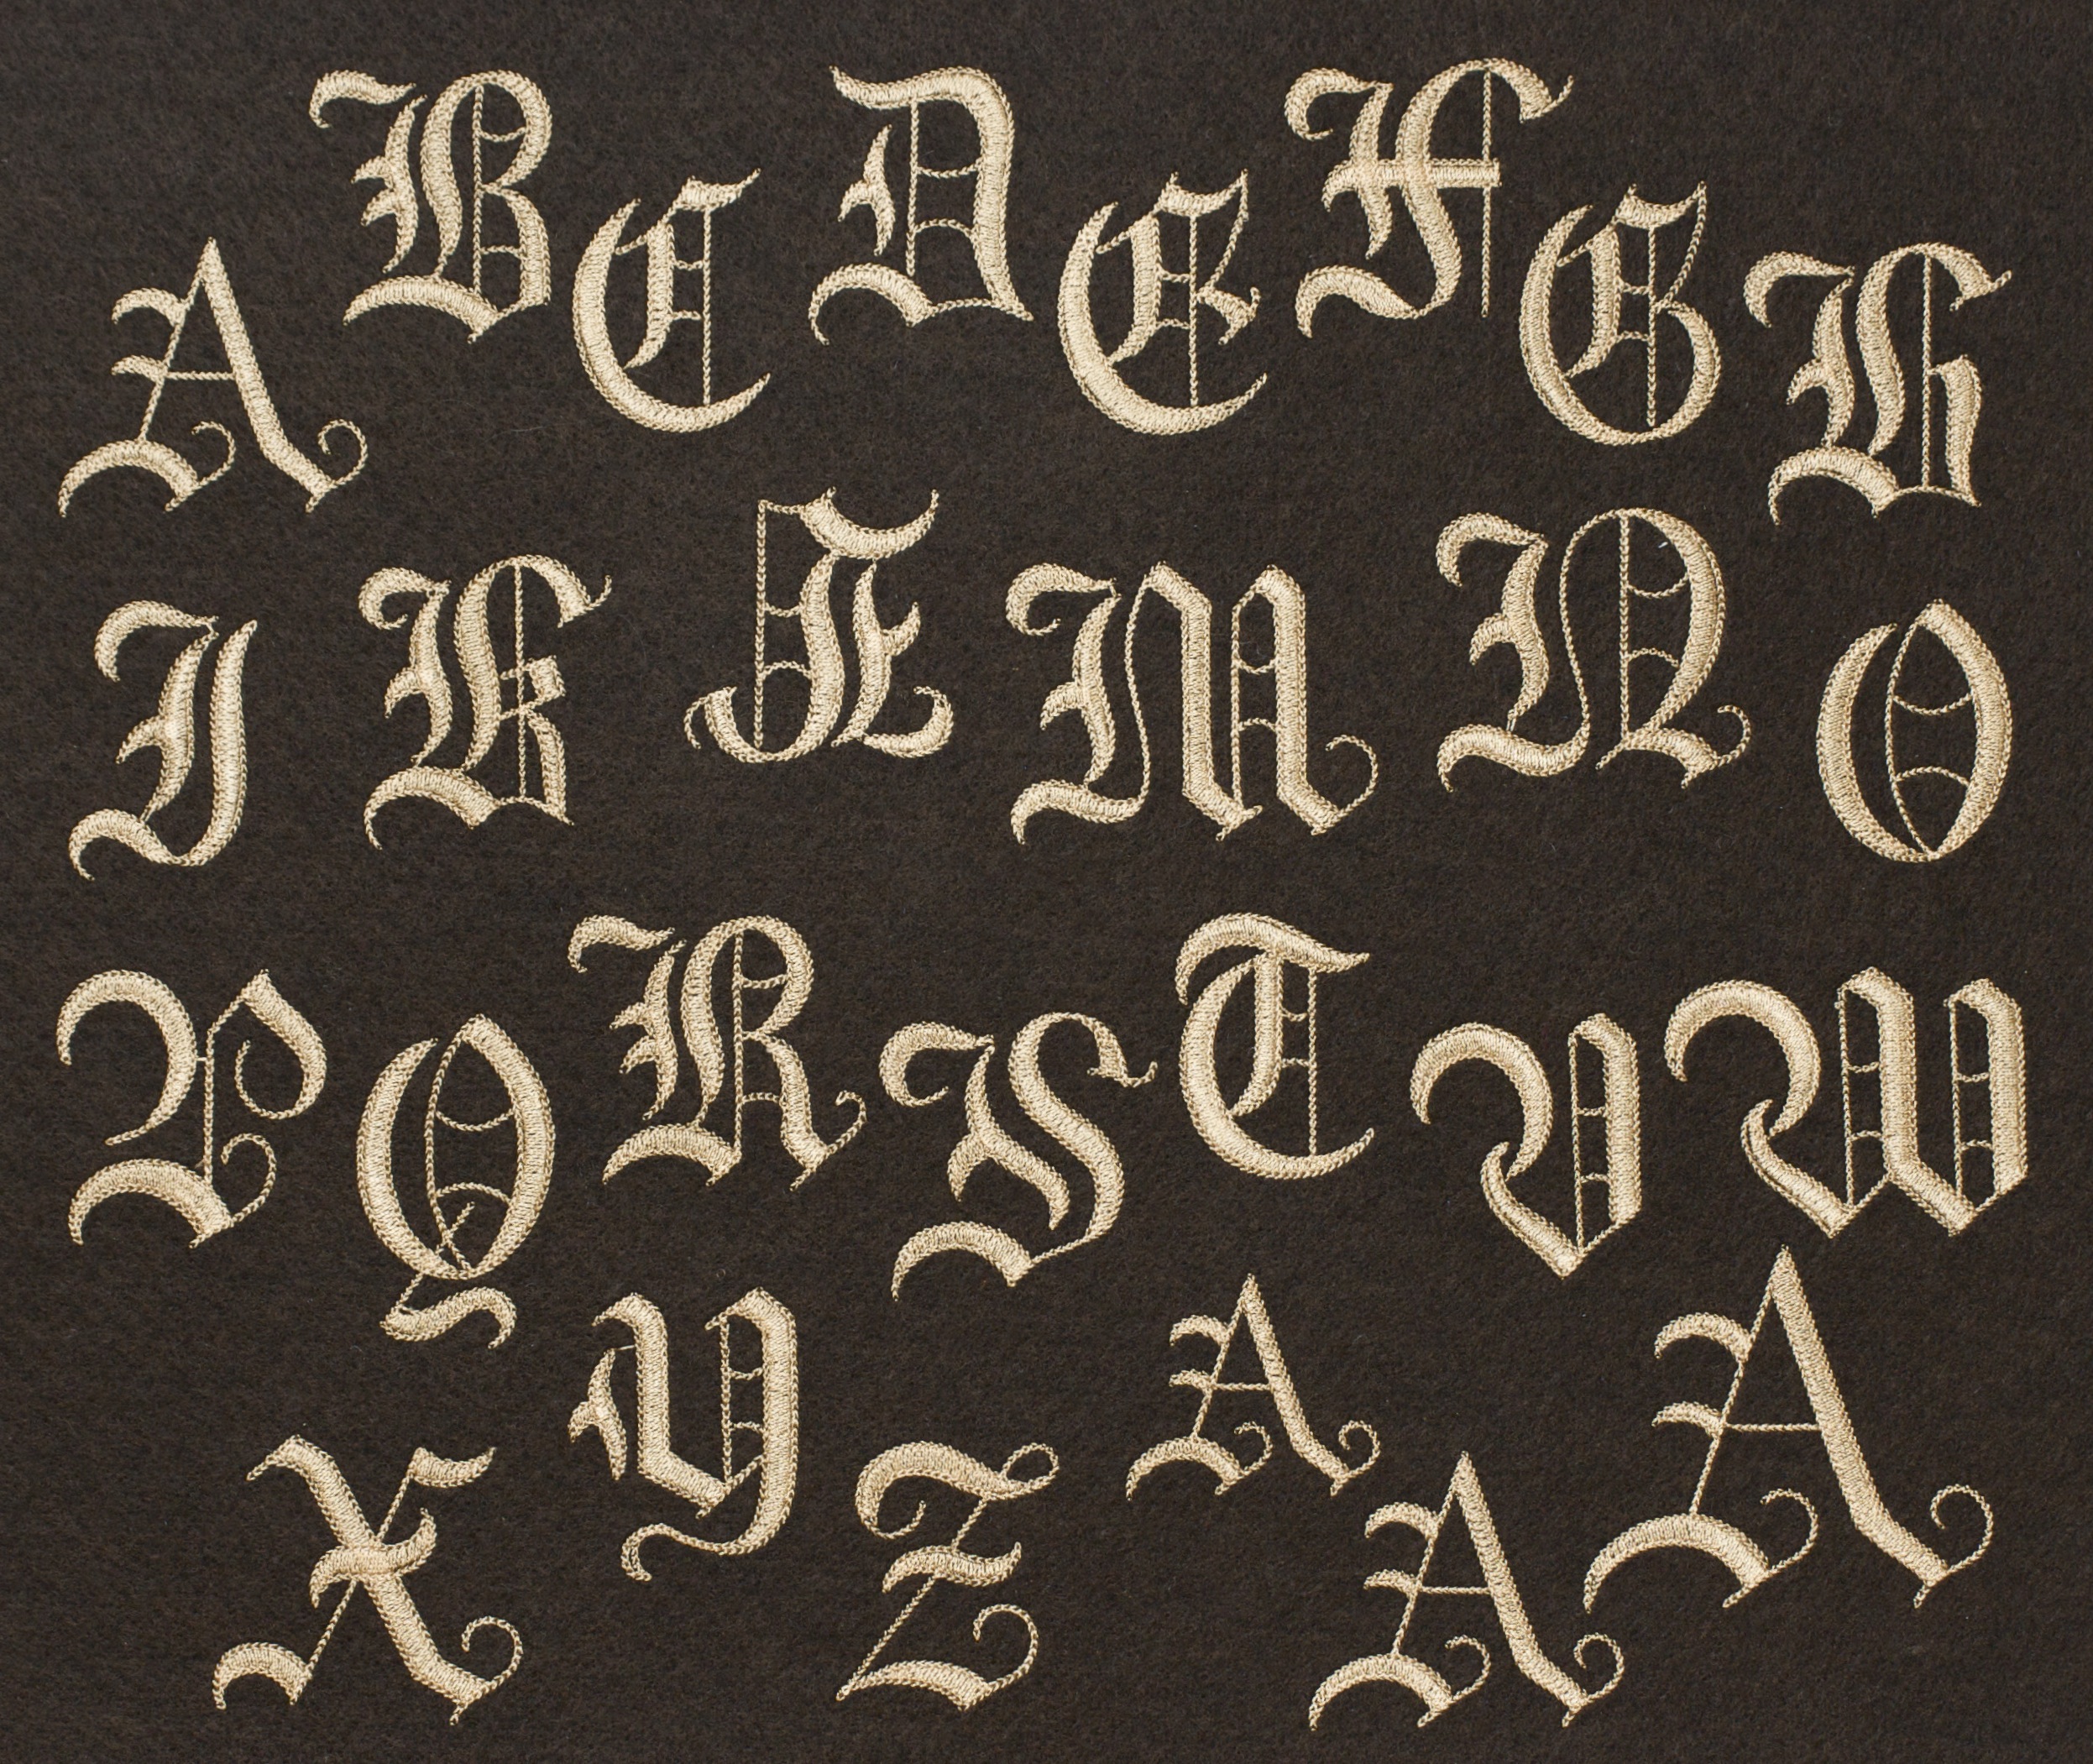 A B C D E F G H
I K L M N O
P Q R S T V W
X Y Z A A A